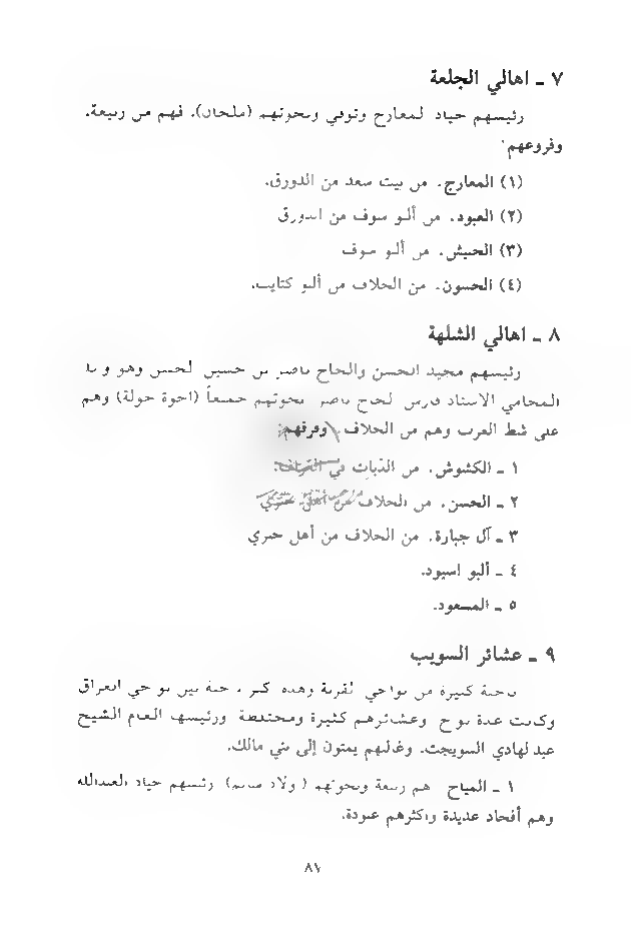 ٧ ـ اهالي الجلعة
رئيسهم حياد لمعارج وتوفي ونخوتهم (ملحان). فهم من ربيعة.
وفروعهم:
(١) المعارج. من بيت سعد من الدورق.
(٢) العبود. من ألبو سوف من الدورق
(٣) الحبش. من ألبو سوف
(٤) الحسون. من الحلاف من ألبو كتايب.
٨ ـ اهالي الشلهة
رئيسهم مجيد الحسن والحاج ناصر بن حسين لحسن وهو والد
المحامي الاستاذ فارس لحاج ناصر نخوتهم جميعاً (اخوة حولة) وهم
على شط العرب وهم من الحلاف وفرقهم:
١ ـ الكشوش. من الذياب في
٢ ـ الحسن. من الحلاف من أهل
٣ ـ آل جبارة. من الحلاف من أهل جبري
٤ ـ ألبو اسيود.
٥ ـ المسعود.
٩ ـ عشائر السويب
ناحية كبيرة من نواحي القرنة وهذه اكبر ناحية بين نواحي العراق
وكانت عدة نواح وعشائرهم كثيرة ومختلطة ورئيسها العام الشيخ
عبد لهادي السويجت. وغالبهم يمتون إلى بني مالك.
١ ـ المياح هم ربيعة ونخوتهم (ولاد) رئيسهم حياد العبدالله
وهم أفخاذ عديدة واكثرهم عبودة.
٨٧